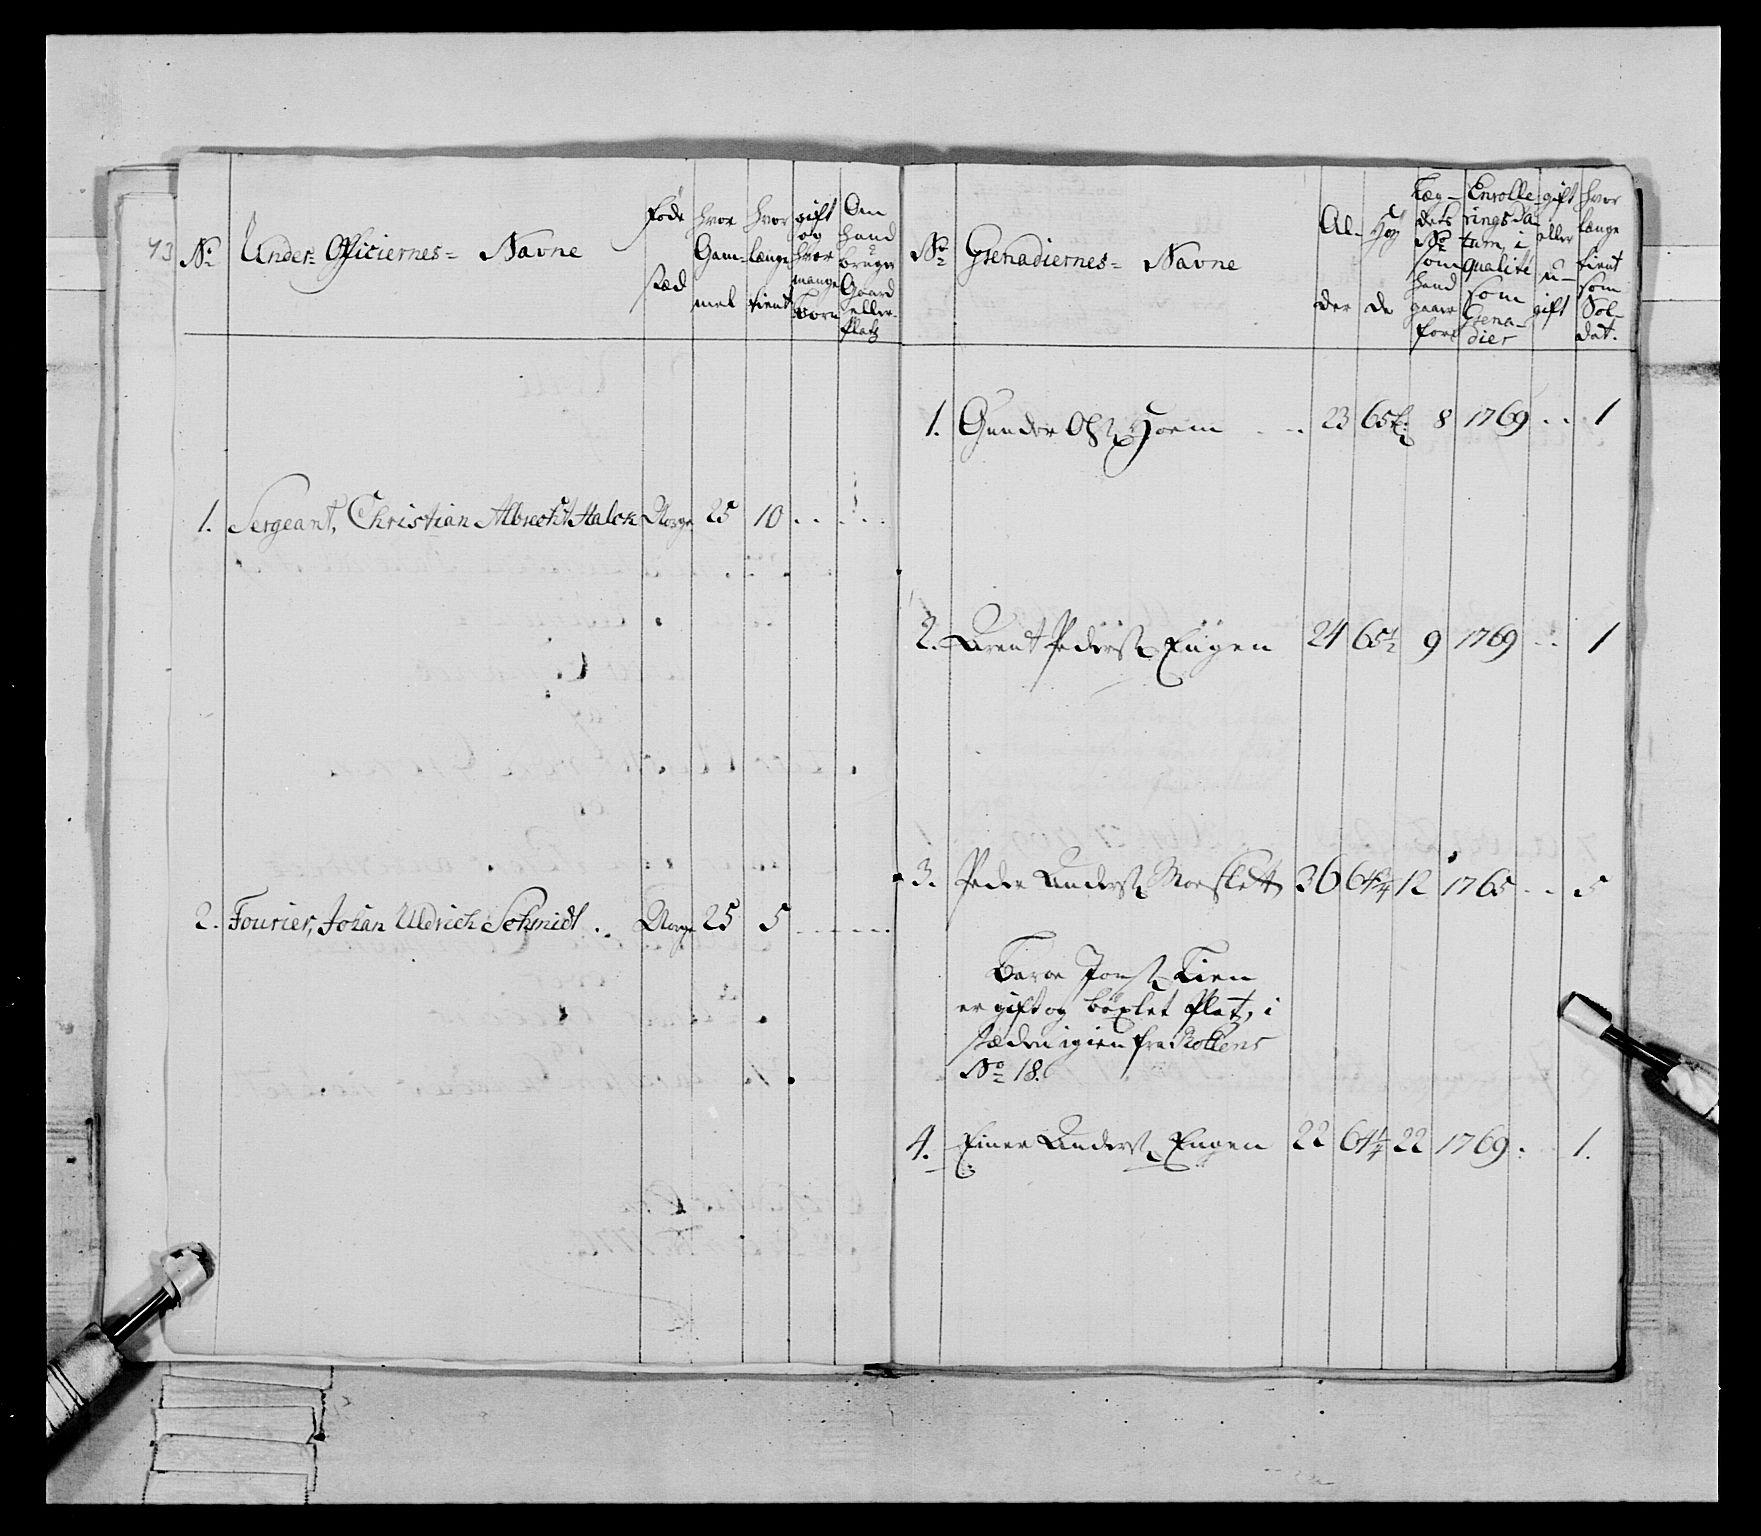 73
No Under- Officiernes= Navne
Føde
stæd
hvor
Gam-
mel
hvor
længe
tient
gift
og
hvor
mange
Børn
Om
hand
bruger
Gaard
eller
Platz
1. Sergeant, Christian Albrecht Halck Norge 25 10
2. Fourier, Johan Uldrich Schmidt .. Norge 25 5
No Grenadiernes= Navne
Al-
der
Høy
de
Læg-
dets
No
som
hand
gaaer
fore
Enrolle-
rings Da
tum, i
qualité
som
Grena-
dier
gift
eller
u-
gift
hvor
længe
tient
som
Sol-
dat.
1. Gunder Hoem 23 65 8 1769 .. 1
2. Arent Peders: Engen 24 65½ 9 1769 .. 1
3. Peder Anders: Moeslett 26 64¾ 12 1765 .. 5
Jons: Lien
er gift og böxlet Platz, i
stæden igien fra Rollens
No 18.
4. Einer Anders: Engen 22 64¼ 22 1769 . 1.